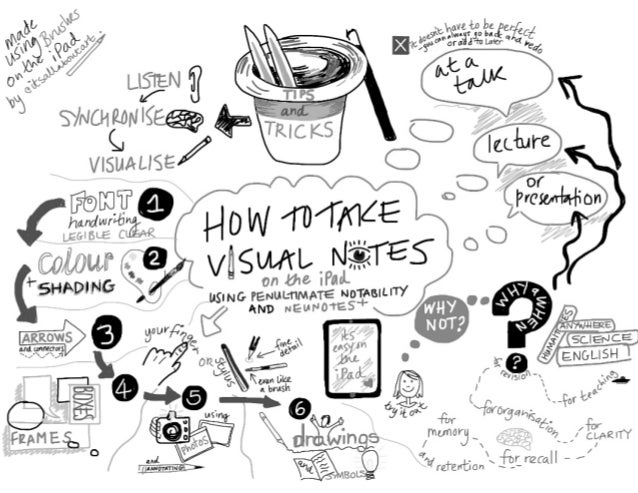 made
using Brushes
on the iPad
by @itsallaboutart
LISTEN
SYNCHRONISE
VISUALISE
TIPS
and
TRICKS
It doesn't have to be perfect
you can always go back and redo
or add to later
at a
talk
lecture
or
presentation
HOW TO TAKE
VISUAL NOTES
on the iPad
USING PENULTIMATE NOTABILITY
AND NEUNOTES+
FONT
handwriting
LEGIBLE CLEAR
1
Colour
+ SHADING
2
ARROWS
and connectors
3
4
BOXES
FRAMES
your finger
OR stylus
fine
detail
even like
a brush
5
using
PHOTOS
and
ANNOTATING
6
drawings
and
SYMBOLS
It's
easy on
the
iPad
WHY
NOT?
try it out
WHY
WHEN
?
HUMANITIES
ANYWHERE
SCIENCE
ENGLISH
or revision
for teaching
for organisation
for
memory
for
CLARITY
and retention
for recall